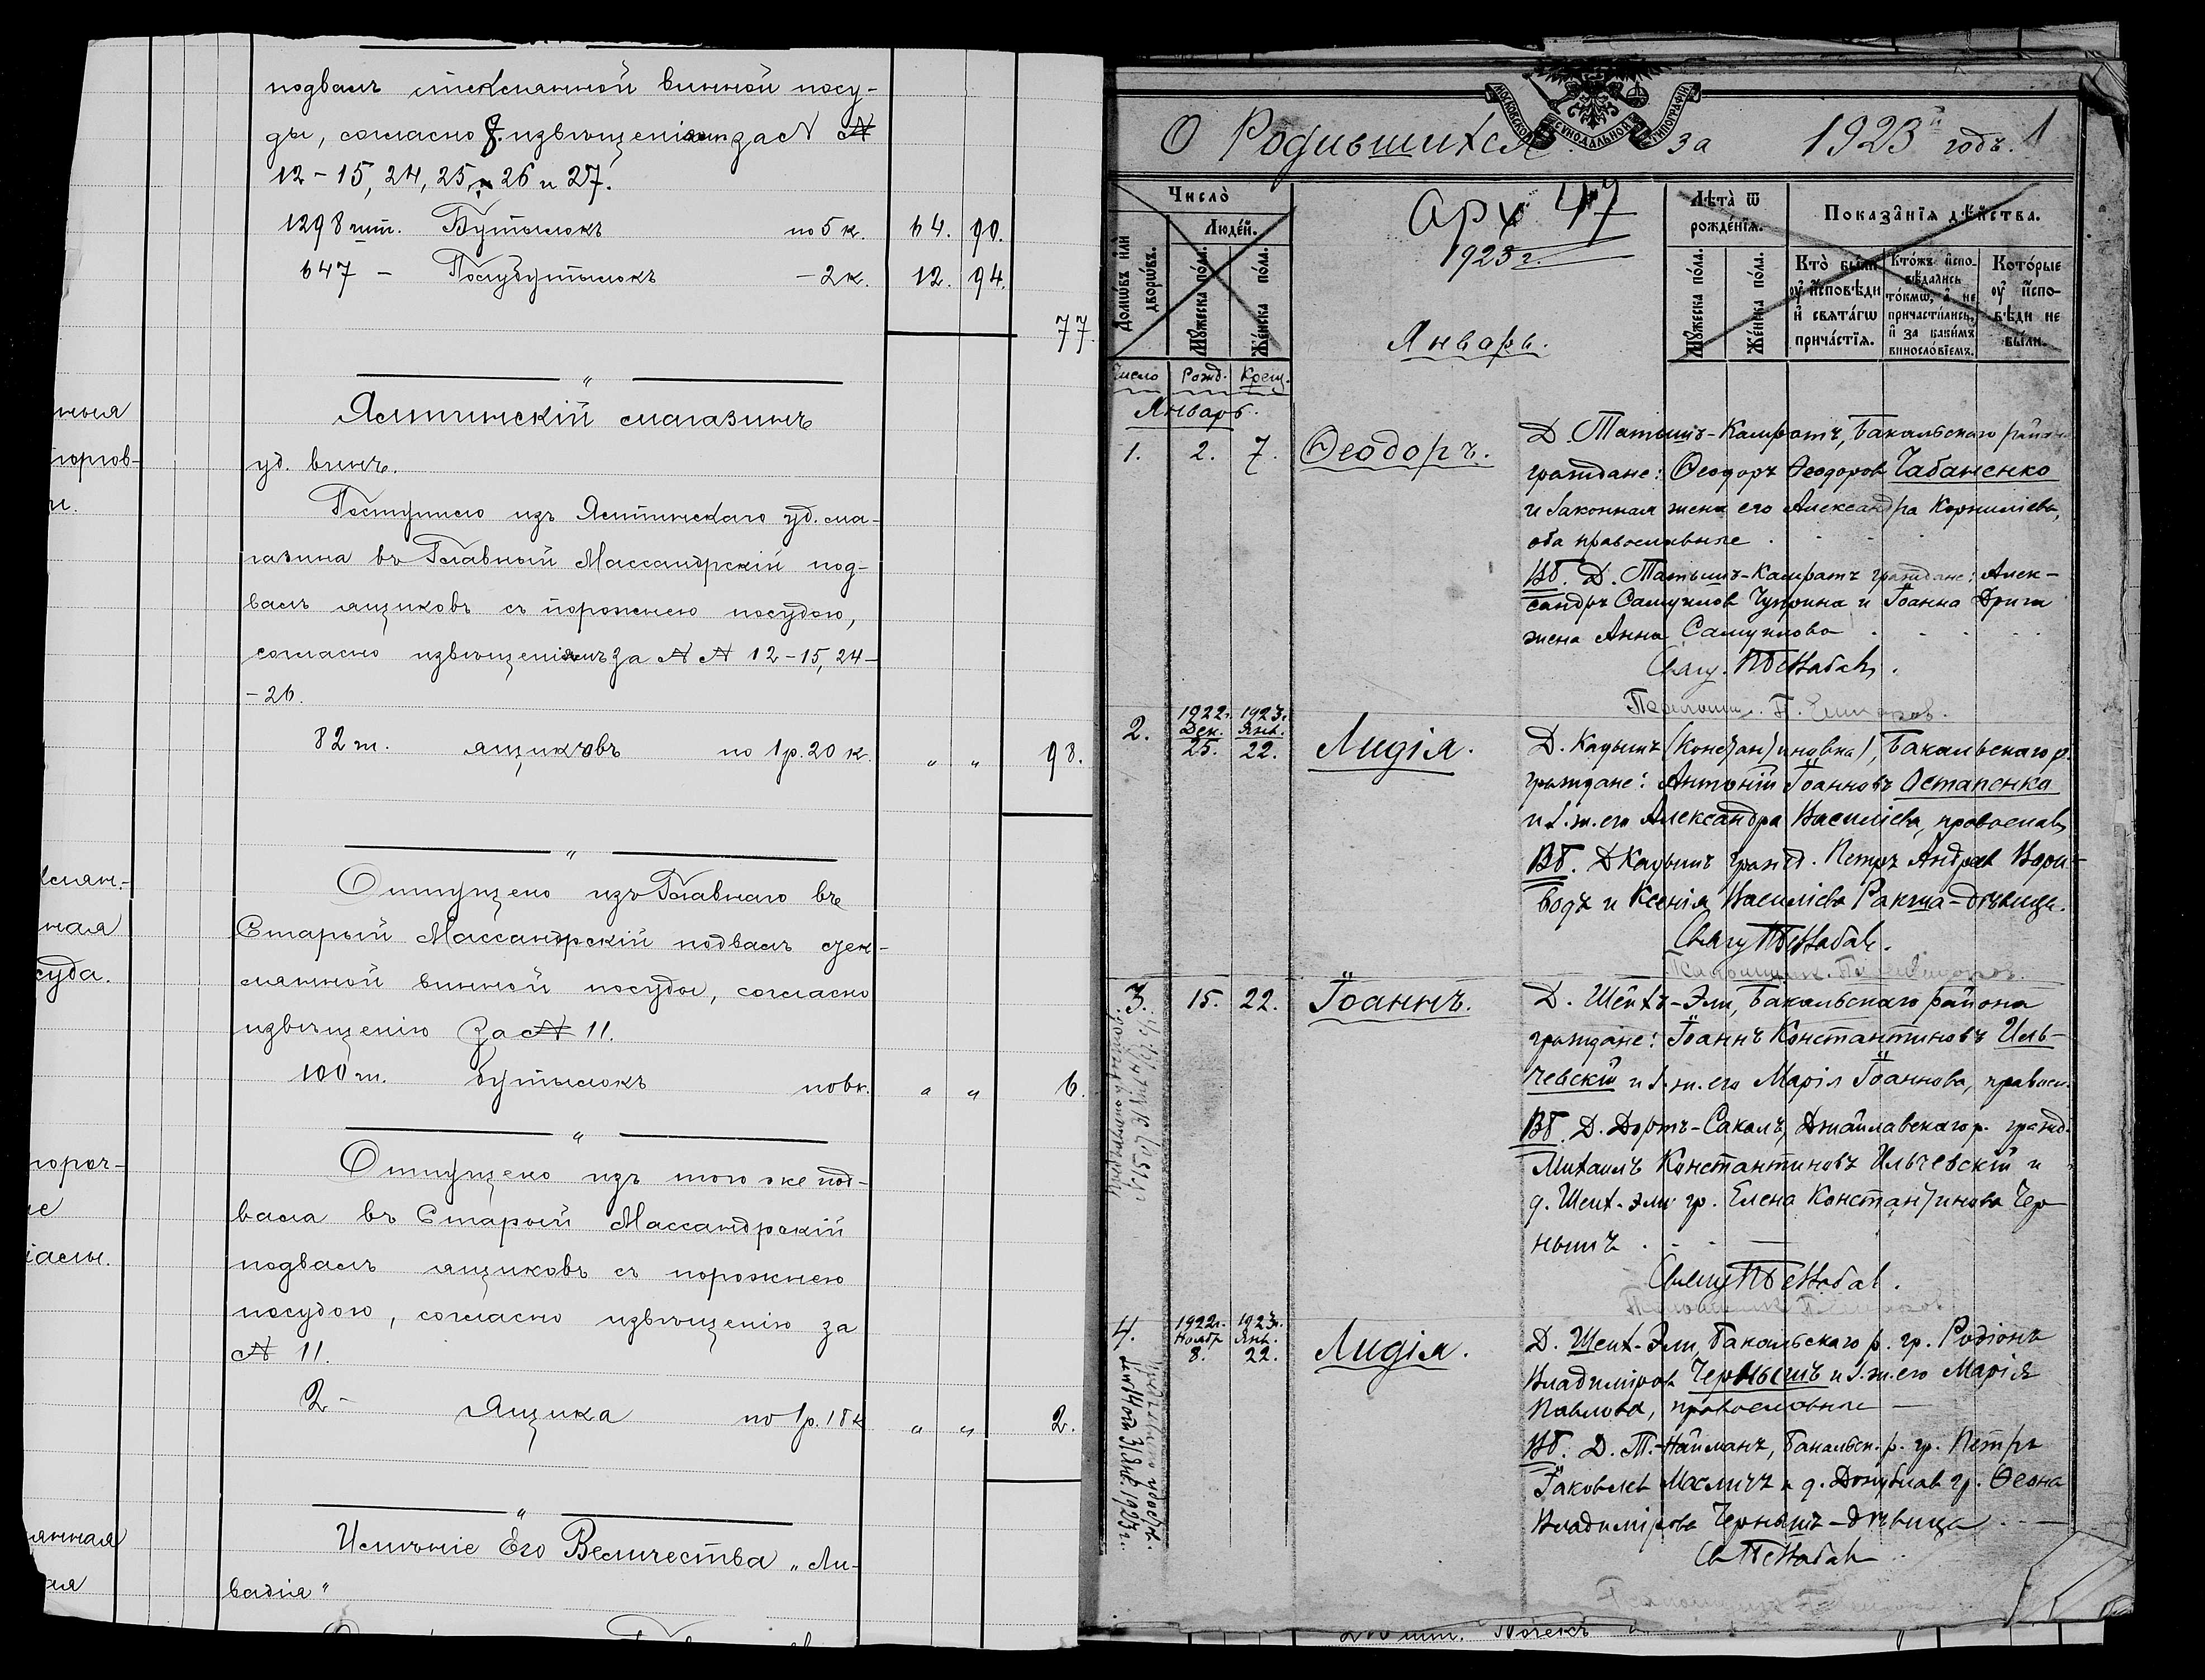 подвалъ стеклянной винной посу-
ды, согласно 8. извѣщеніямъ за № №
12-15, 24, 25, 26 и 27.
1298 шт. Бутылокъ по 5 к. 64. 90.
647 - Полубутылокъ - 2 к. 12. 94.
77.
Ялтинскій магазинъ
уд. винъ.
Поступило изъ Ялтинскаго уд. ма-
газина въ Главный Массандрскій под-
валъ ящиковъ съ порожнею посудою,
согласно извѣщеніямъ за № № 12-15, 24-
-26.
82 ш. ящиковъ по 1 р. 20 к. " " 98.
Отпущено изъ Главнаго въ
Старый Массандрскій подвалъ стек-
лянной винной посуды, согласно
извѣщенію за № 11.
100 ш. бутылокъ по 6 к. " " 6.
Отпущено изъ того же под-
вала въ Старый Массандрскій
подвалъ ящиковъ съ порожнею
посудою, согласно извѣщенію за
№ 11.
2 - Ящика по 1 р. 18 к " " 2.
Имѣніе Его Величества „Ли-
вадія"
ныя
торгов-
клян.-
ная
суда.
пороч-
лянная
ая
МОСКОВСКОЙ СѴНОДАЛЬНОЙ ТИПОГРАФІИ
О Родившихся за 1923 годъ. 1
Число̀
Домѡ́въ и҆лѝ дворѡ́въ.
Люде́й.
Мꙋ́жеска по́ла.
Же́нска по́ла.
Арх 47
1923 г.
Январь.
Лѣ́та ѿ рожде́нїѧ.
Мꙋ́жеска по́ла.
Же́нска по́ла.
Показа̑нїѧ дѣ́йства.
Кто̀ бы́ли оу҆ и҆сповѣ́ди и҆ свѧта́гѡ прича́стїѧ.
Кто́жъ и҆сповѣ́дались то́кмѡ, а҆ не причасти́лись, и҆ за каки́мъ винословїемъ.
Кото́рые оу҆ и҆сповѣ́ди не бы́ли.
Число Рожд. Крещ.
Январь.
1. 2. 7. Ѳеодоръ.
Д. Татышъ-Камратъ, Бакальскаго район.
граждане: Ѳеодоръ Ѳеодоровъ Чабаненко
и законная жена его Александра Корниліева,
оба православные
Вб. Д. Татышъ-Камратъ граждане: Алек-
сандръ Самуиловъ Чуприна и Іоанна Дрига
жена Анна Самуилова
2. 1922 г. Дек. 25. 1923 г. Янв. 22. Лидія.
Д. Кадышъ (Константиновка), Бакальскаго р.
граждане: Антоній Іоанновъ Остапенко
и з. ж. его Александра Василіева, православ
Вб. Д Кадышъ гражд. Петръ Андреев
и Ксенія Василіева Ракша-дѣвица.
3. 15. 22. Іоаннъ.
Д. Шейхъ-Эли, Бакальскаго района
граждане: Іоаннъ Константиновъ Иль-
чевскій и з. ж. его Марія Іоаннова, правосл.
Вб. Д. Дортъ-Сакалъ, Джайлавскаго р. гражд.
Михаилъ Константиновъ Ильчевскій и
д. Шейх-эли гр. Елена Константинова Чер
нышъ
4. 1922 г. Ноябр 8. 1923 г. Янв. 22. Лидія.
Д. Шейх-Эли, Бакальскаго р. гр. Родіонъ
Владиміров Чернышъ и з. ж. его Марія
Павлова, православные
Вб. Д. Т.-Найманъ, Бакальск. р. гр. Петръ
Іаковлев Масличъ и д. Донузлав гр. Ѳеона
Владимірова Чернышъ-дѣвица